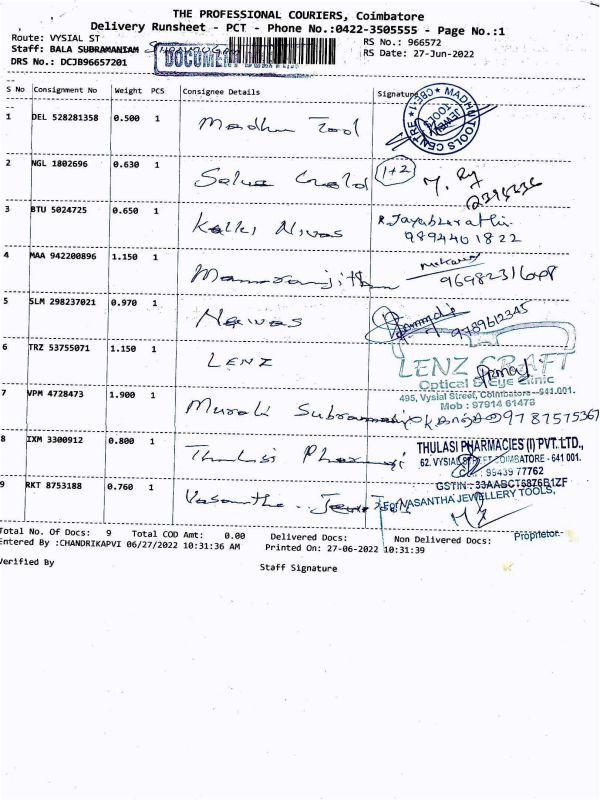 THE PROFESSIONAL COURIERS, Coimbatore
Delivery Runsheet - PCT - Phone No.:0422-3505555 - Page No.:1
Route: VYSIAL ST
RS No.: 966572
Staff: BALA SUBRAMANIAM
RS Date: 27-Jun-2022
DRS No.: DCJB96657201
DOCUMENT
S No Consignment No Weight PCS Consignee Details Signature
1 DEL 528281358 0.500 1 Madhu Tool
MADHU TOOLS CENTRE ★ CBE-1 ★
JEWEL TOOLS
2 NGL 1802696 0.630 1 Selva Gold 1+2
3 BTU 5024725 0.650 1 Kalki Nivas R. Jayabharathi
9894401822
4 MAA 942200896 1.150 1 Manoranjitham
5 SLM 298237021 0.970 1 Nawas 9789612345
6 TRZ 53755071 1.150 1 LENZ
LENZ CRAFT
Optical & Eye Clinic
495, Vysial Street, Coimbatore--641.001.
Mob : 97914 61478
7 VPM 4728473 1.900 1 Murali Subramani 9787575367
8 IXM 3300912 0.800 1 Thulasi Pharmaci
THULASI PHARMACIES (I) PVT. LTD.,
62, VYSIAL STREET COIMBATORE - 641 001.
99439 77762
GSTIN : 33AABCT6876B1ZF
9 RKT 8753188 0.760 1 Vasantha Jew Tools
For VASANTHA JEWELLERY TOOLS,
Proprietor.
Total No. Of Docs: 9 Total COD Amt: 0.00 Delivered Docs: Non Delivered Docs:
Entered By :CHANDRIKAPVI 06/27/2022 10:31:36 AM Printed On: 27-06-2022 10:31:39
Verified By
Staff Signature